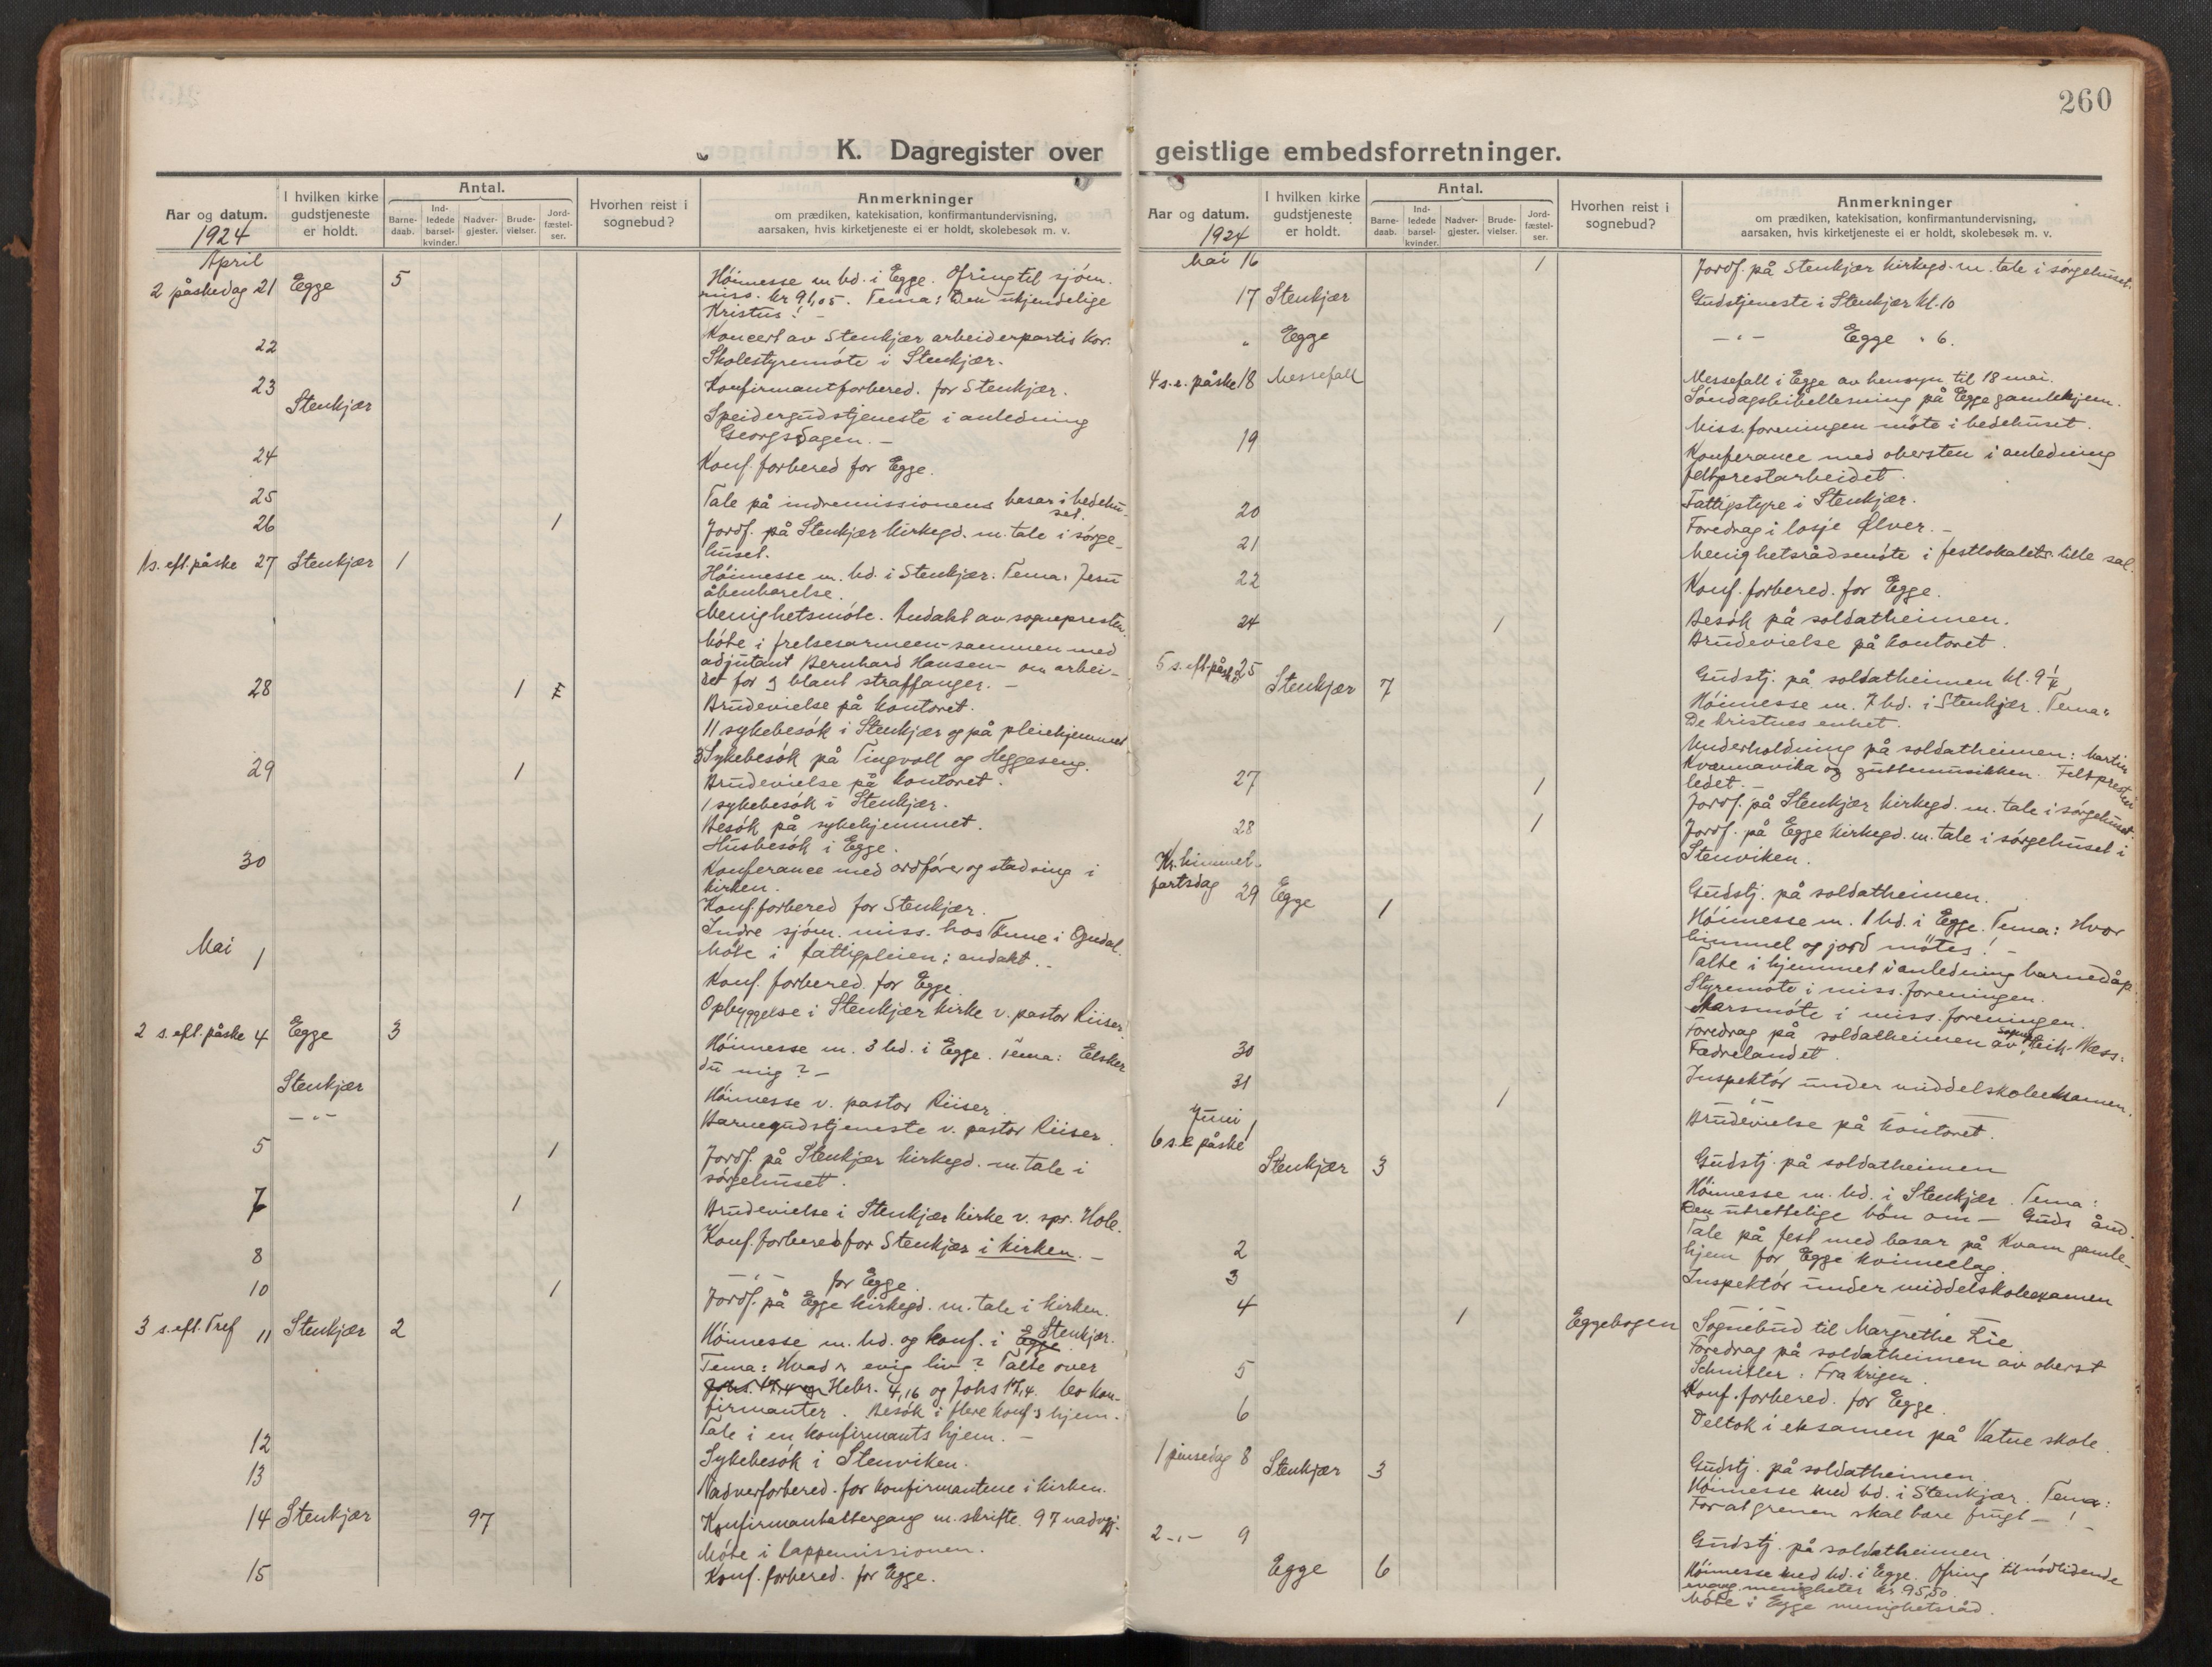 260
K. Dagregister over geistlige embedsforretninger.
Aar og datum.
1924
I hvilken kirke gudstjeneste er holdt.
Antal.
Barne-daab.
Ind-ledede barsel-kvinder.
Nadver-gjester.
Brude-vielser.
Jord-fæstel-ser.
Hvorhen reist i sognebud?
Anmerkninger
om prædiken, katekisation, konfirmantundervisning,
aarsaken, hvis kirketjeneste ei er holdt, skolebesøk m. v.
April
2 påskedag 21 Egge 5 Höimesse m bd. i Egge. Ofring til sjöm.
miss. kr 91,05. Tema: Den ukjendelige
Kristus! -
22 Koncert av Stenkjær arbeiderpartis kor.
Skolestyremöte i Stenkjær.
23 Konfirmantforbered. for Stenkjær.
Stenkjær Speidergudstjeneste i anledning
Georgsdagen. -
24 Konf. forbered for Egge.
25 Tale på indremissionens basar i bedehu-
set.
26 1 Jordf. på Stenkjær kirkegd. m. tale i sörge-
huset.
1 s. eft. påske 27 Stenkjær 1 Höimesse m. bd. i Stenkjær. Tema: Jesu
åbenbarelse.
Menighetsmöte. Andakt av sognepresten.
Möte i frelsesarmeen - sammen med
adjutant Bernhard Hansen - om arbei-
det for og blant straffanger. -
28 1 Brudevielse på kontoret.
11 sykebesök i Stenkjær og på pleiehjemmet.
3 Sykebesök på Tingvoll og Heggeseng.
29 1 Brudevielse på kontoret.
1 sykebesök i Stenkjær.
Besök på sykehjemmet.
Husbesök i Egge.
30 Konferance med ordförer og stadsing i
kirken.
Konf. forbered for Stenkjær.
Indre sjöm. miss. hos Tönne i Ogndal.
Mai 1 Möte i fattigpleien; andakt. -
Konf. forbered. for Egge.
Opbyggelse i Stenkjær kirke v. pastor Riiser.
2 s. eft. påske 4 Egge 3 Höimesse m. 3 bd. i Egge. Tema: Elsker
du mig? -
Stenkjær Höimesse v. pastor Riiser.
- " - Barnegudstjeneste v. pastor Riiser.
5 1 Jordf. på Stenkjær kirkegd. m. tale i
sörgehuset.
7 1 Brudevielse i Stenkjær kirke v. spr. Hole.
Konf. forbered for Stenkjær i kirken. -
8 - " - for Egge.
10 1 Jordf. på Egge kirkegd. m. tale i kirken.
3 s. eft. Tref 11 Stenkjær 2 Höimesse m. bd. og konf. i Egge Stenkjær.
Tema: Hvad er evig liv? Talte over
Johs. 17,4 og Hebr. 4,16 og Johs 17,4. 60 kon-
firmanter. Besök i flere konf.s hjem.
Tale i en konfirmants hjem. -
12 Sykebesök i Stenviken.
13 Nadverforbered. for konfirmantene i kirken.
14 Stenkjær 97 Konfirmantaltergang m. skrifte. 97 nadvgj.
Möte i Lappemissionen.
15 Konf. forbered. for Egge.
Aar og datum.
1924
I hvilken kirke gudstjeneste er holdt.
Antal.
Barne-daab.
Ind-ledede barsel-kvinder.
Nadver-gjester.
Brude-vielser.
Jord-fæstel-ser.
Hvorhen reist i sognebud?
Anmerkninger
om prædiken, katekisation, konfirmantundervisning,
aarsaken, hvis kirketjeneste ei er holdt, skolebesøk m. v.
Mai 16 1 Jordf. på Stenkjær kirkegd. m. tale i sörgehuset.
17 Stenkjær Gudstjeneste i Stenkjær kl. 10
" Egge - " - Egge " 6.
4 s. e. påske 18 Messefall Messefall i Egge av hensyn til 18 mai.
Söndagsbibellesning på Egge gamlehjem.
Miss. foreningen möte i bedehuset.
19 Konferance med obersten i anledning
feltprestarbeidet.
Fattigstyre i Stenkjær.
20 Foredrag i losje Ølver. -
21 Menighetsrådsmöte i festlokalets lille sal.
22 Konf. forbered. for Egge.
Besök på soldatheimen.
24 1 Brudevielse på kontoret.
5 s. eft. påske 25 Gudstj. på soldatheimen kl. 9 1/4
Stenkjær 7 Höimesse m. 7 bd. i Stenkjær. Tema:
De kristnes enhet.
Underholdning på soldatheimen: Martin
Kvannavika og guttemusikken. Feltpresten
ledet. -
27 1 Jordf. på Stenkjær kirkegd. m. tale i sörgehuset.
28 1 Jordf. på Egge kirkegd. m. tale i sörgehuset i
Stenviken.
Kr. himmel-
fartsdag 29 Egge 1 Gudstj. på soldatheimen.
Höimesse m. 1 bd. i Egge. Tema: Hvor
himmel og jord mötes! -
Talte i hjemmet i anledning barnedåp.
Styremöte i miss. foreningen.
Årsmöte i miss. foreningen.
Foredrag på soldatheimen av sogneprest Næss:
Fædrelandet.
30 Inspektör under middelskoleeksamen.
31 1 - " -
Brudevielse på kontoret.
Juni 1
6 s. e påske Gudstj. på soldatheimen
Stenkjær 3 Höimesse m. bd. i Stenkjær. Tema:
Den utrettelige bön om - Guds ånd.
Tale på fest med basar på Kvam gamle-
hjem for Egge kvinnelag.
2 Inspektör under middelskoleexamen
3 - " -
4 1 Eggebogen Sognebud til Margrethe Lie.
Foredrag på soldatheimen av oberst
Schnitler: Fra krigen.
5 Konf. forbered. for Egge.
6 Deltok i eksamen på Vatne skole.
1 pinsedag 8 Stenkjær 3 Gudstj. på soldatheimen.
Höimesse med bd. i Stenkjær. Tema:
For at grenen skal bære frugt - !
2 - " - 9 Gudstj. på soldatheimen.
Egge 6 Höimesse med bd. i Egge. Ofring til nödlidende
evang. menigheter kr. 95,50.
Möte i Egge menighetsråd.